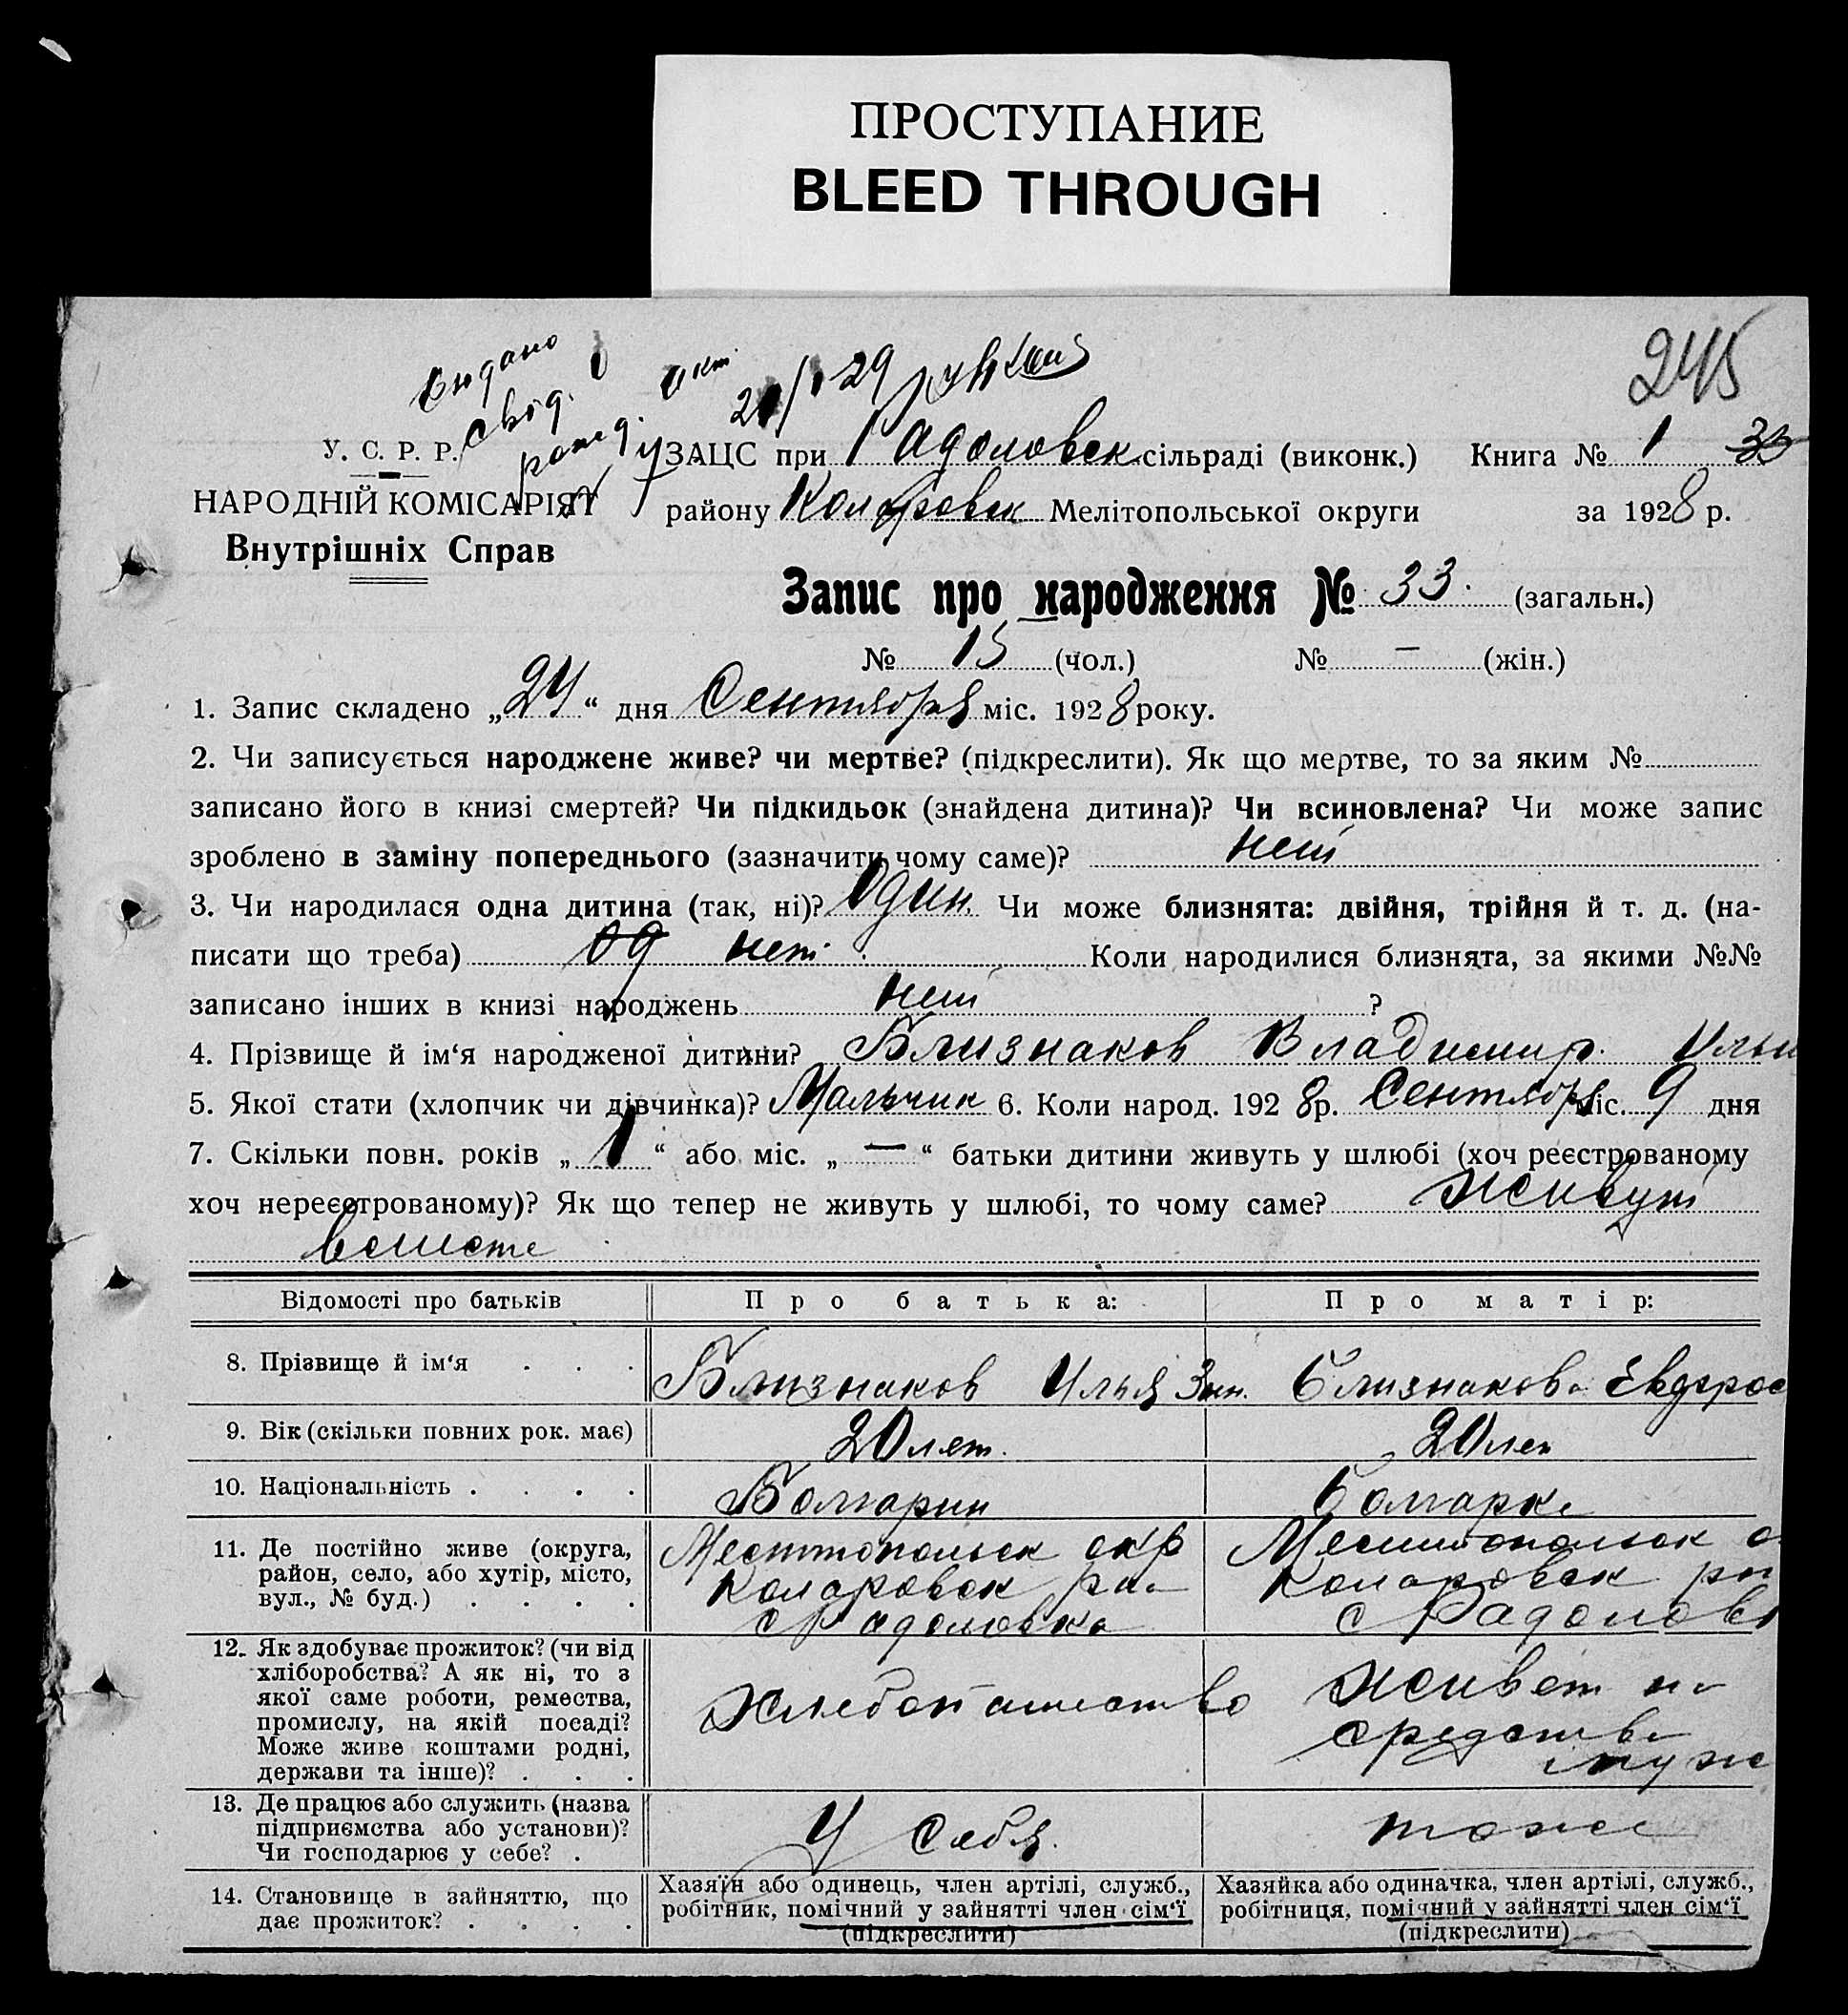 ПРОСТУПАНИЕ
BLEED THROUGH
245
Видано
свід.
У. С. Р. Р.
НАРОДНІЙ КОМІСАРІЯТ
Внутрішніх Справ
ЗАЦС при Радоловск сільраді (виконк.) Книга № 1 33
району Коларовск Мелітопольської округи за 1928 р.
Запис про народження № 33. (загальн.)
№ 15 (чол.) № — (жін.)
1. Запис складено „24“ дня Сентября міс. 1928 року.
2. Чи записується народжене живе? чи мертве? (підкреслити). Як що мертве, то за яким №
записано його в книзі смертей? Чи підкидьок (знайдена дитина)? Чи всиновлена? Чи може запис
зроблено в заміну попереднього (зазначити чому саме)? нет
3. Чи народилася одна дитина (так, ні)? Один. Чи може близнята: двійня, трійня й т. д. (на-
писати що треба) од нет. Коли народилися близнята, за якими №№
записано інших в книзі народжень нет ?
4. Прізвище й ім‘я народженої дитини? Близнаков Владимир. Ильи
5. Якої стати (хлопчик чи дівчинка)? Мальчик 6. Коли народ. 1928 р. Сентября міс. 9 дня
7. Скільки повн. років „1“ або міс. „—“ батьки дитини живуть у шлюбі (хоч реєстрованому
хоч нереєстрованому)? Як що тепер не живуть у шлюбі, то чому саме? живут
вместе
Відомості про батьків Про батька: Про матір:
8. Прізвище й ім‘я . . . Близнаков Илья Зин. Близнакова Евдрос
9. Вік (скільки повних рок. має) 20 лет. 20 лет
10. Національність . . . . Болгарин Болгарка
11. Де постійно живе (округа,
район, село, або хутір, місто,
вул., № буд.) . . . .
Мелитопольск окр
Коларовск ра
с Радоловка
Мелитопольск о
Коларовск ра
с Радоловк
12. Як здобуває прожиток? (чи від
хліборобства? А як ні, то з
якої саме роботи, ремества,
промислу, на якій посаді?
Може живе коштами родні,
держави та інше)? . . .
Хлебопашество
Живет на
средства
муж
13. Де працює або служить (назва
підприємства або установи)?
Чи господарює у себе? .
У себя.
тоже
14. Становище в зайняттю, що
дає прожиток? . . . .
Хазяїн або одинець, член артілі, служб.,
робітник, помічний у зайнятті член сім‘ї
(підкреслити)
Хазяйка або одиначка, член артілі, служб.,
робітниця, помічний у зайнятті член сім‘ї
(підкреслити)